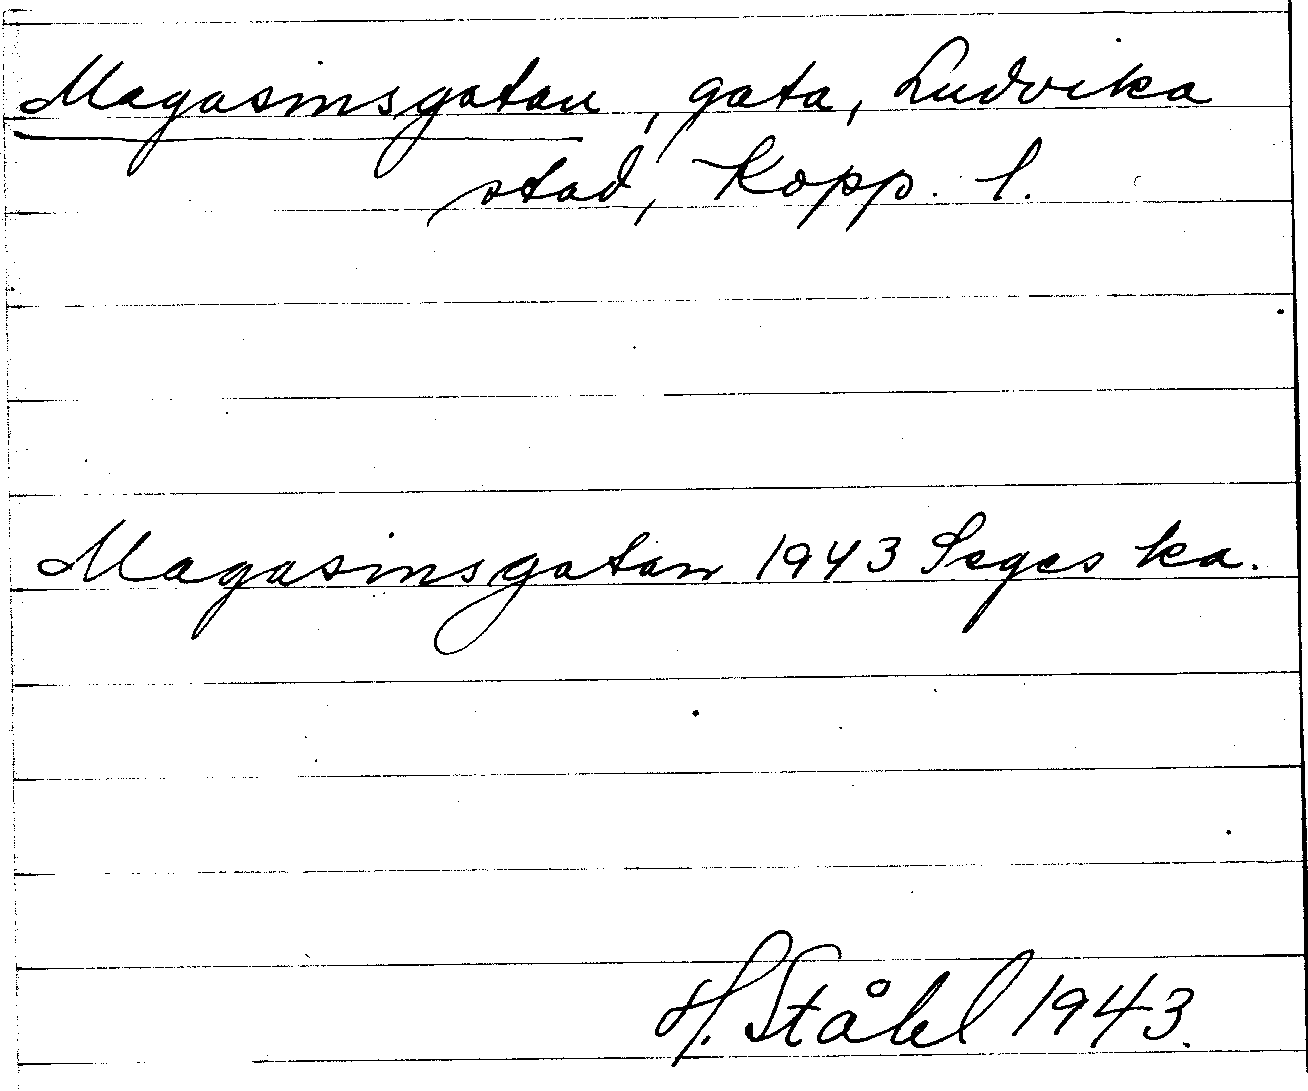 Magasinsgatan, gata, Ludvika
stad, Kopp. l.
Magasinsgatan 1943 Seges ka.
H. Ståhl 1943.